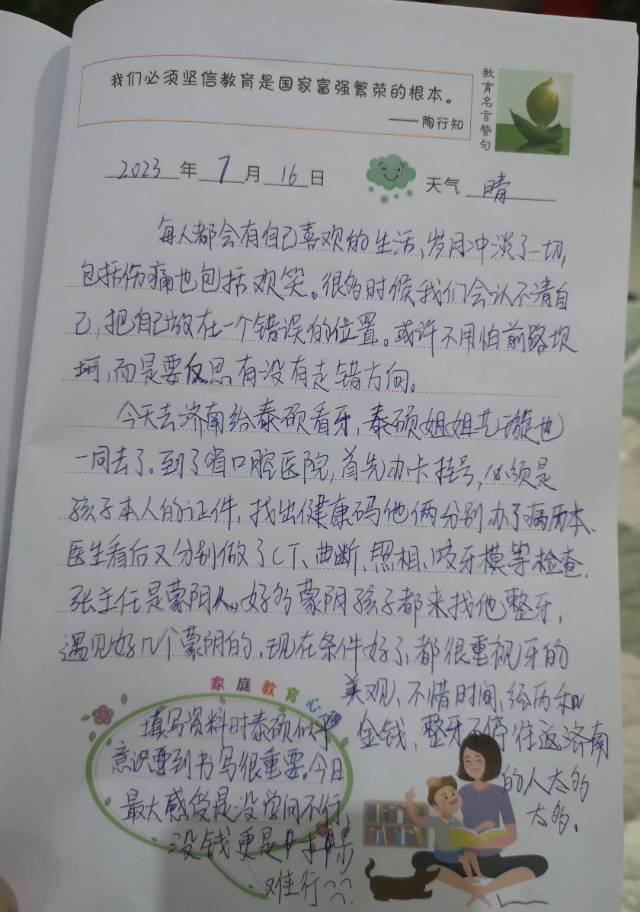 我们必须坚信教育是国家富强繁荣的根本。
——陶行知
教育名言警句
2023年7月16日 天气 晴
每人都会有自己喜欢的生活,岁月冲淡了一切,
包括伤痛也包括欢笑。很多时候我们会认不清自
己,把自己放在一个错误的位置。或许不用怕前路坎
坷,而是要反思有没有走错方向。
今天去济南给泰硕看牙,泰硕姐姐艺璇也
一同去了。到了省口腔医院,首先办卡挂号,必须是
孩子本人的证件,找出健康码他俩分别办了病历本、
医生看后又分别做了CT、曲断、照相、咬牙模等检查.
张主任是蒙阴人,好多蒙阴孩子都来找他整牙,
遇见好几个蒙阴的.现在条件好了,都很重视牙的
美观、不惜时间、经历和
金钱,整牙不停往返济南
的人太多
太多.
家庭教育心
填写资料时泰硕似乎
意识到书写很重要。今日
最大感受是没学问不行,
没钱更是
难行